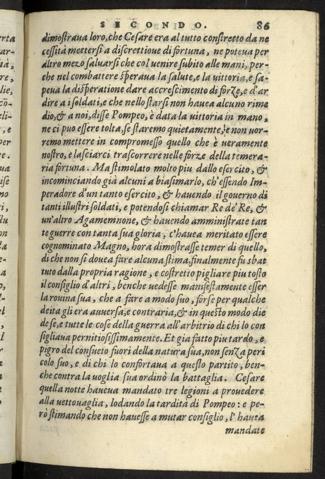 SECONDO. 86
dimostraua loro, che Cesare era al tutto constretto da ne
cessità mettersi a discrettione di fortuna, ne poteua per
altro mezo saluarsi che col uenire subito alle mani, per-
che nel combattere speraua la salute, e la uittoria, e sa-
peua la disperatione dare accrescimento di forze, e d'ar
dire a i soldati, e che nello starsi non hauea alcuno rime
dio, & a noi, disse Pompeo, è data la uittoria in mano,
ne ci può essere tolta, se staremo quietamente, e non uor-
remo mettere in compromesso quello che è ueramente
nostro, e lasciarci trascorrere nelle forze della temera-
ria fortuna. Ma stimolato molto piu dallo esercito, &
incominciando già alcuni a biasimarlo, ch'essendo Im-
peradore d'un tanto esercito, & hauendo il gouerno di
tanti illustri soldati, e potendosi chiamar Re de' Re, &
un'altro Agamemnone, & hauendo amministrate tan
te guerre con tanta sua gloria, c'haueua meritato essere
cognominato Magno, hora dimostrasse temer di quello,
di che non si doueua fare alcuna stima, finalmente fu sbat
tuto dalla propria ragione, e costretto pigliare piu tosto
il consiglio d'altri, benche uedesse manifestamente esser
la rouina sua, che a fare a modo suo, forse per qualche
deita gli era auuersa, e contraria, & in questo modo die
de se, e tutte le cose della guerra all'arbitrio di chi lo con
sigliaua pernitiosissimamente. Et gia fatto piu tardo, e
pigro del consueto fuori della natura sua, non senza peri
colo suo, e di chi lo confortaua a questo partito, ben-
che contra la uoglia sua ordinò la battaglia. Cesare
quella notte haueua mandato tre legioni a prouedere
alla vettouaglia, lodando la tardità di Pompeo: e pe-
rò stimando che non hauesse a mutar consiglio, l'hauea
mandate